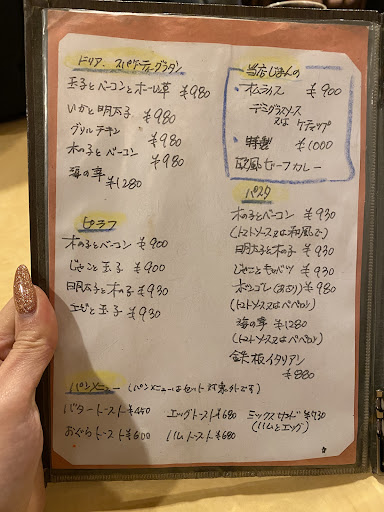 ドリア、スパゲティーグラタン
玉子とベーコンとホーレン草 ¥980
いかと明太子 ¥980
グリルチキン ¥980
木の子とベーコン ¥980
海の幸 ¥1280
ピラフ
木の子とベーコン ¥900
じゃこと玉子 ¥900
明太子と木の子 ¥930
エビと玉子 ¥930
当店じまんの
・オムライス ¥900
デミグラスソース
又は ケチャップ
・特製 ¥1000
欧風ビーフカレー
パスタ
木の子とベーコン ¥930
(トマトソース又は和風で)
明太子と木の子 ¥930
じゃことキャベツ ¥930
ボンゴレ(あさり) ¥980
(トマトソース又はペペロン)
海の幸 ¥1280
(トマトソース又はペペロン)
鉄板イタリアン
¥880
パンメニュー (パンメニューはセット対象外です)
バタートースト ¥440 エッグトースト ¥680 ミックスサンド ¥730
(ハムとエッグ)
おぐらトースト ¥600 ハムトースト ¥680